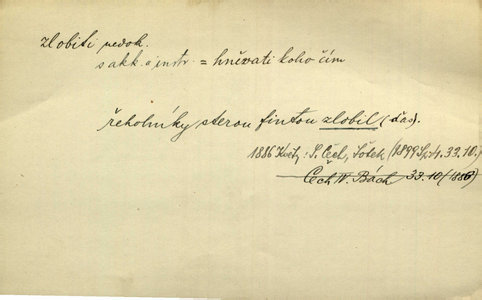 zlobiti nedok.
s akk. a instr. = hněvati koho čím
řeholníky sterou fintou zlobil (ďas).
1886 Květy: S. Čech, Šotek (1899 Sp. 4. 33. 10.)
Čech IV. Bách 33. 10 (1886)